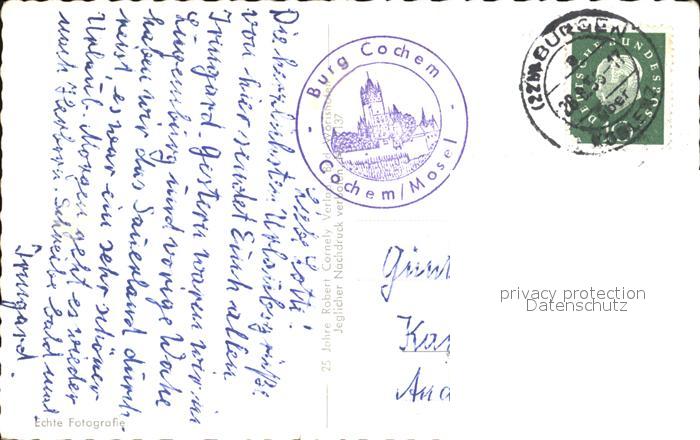 Liebe Lotti!
Die herzlichsten Urlaubsgrüße
von hier sendet Euch allen
Irmgard. Gestern waren wir in
Luxemburg und vorige Woche
haben wir das Sauerland durch-
reist, es war ein sehr schöner
Urlaub. Morgen geht es wieder
nach Herborn. Schreibe bald mal
Irmgard.
Echte Fotografie
25 Jahre Robert Cornely Verlag
Jeglicher Nachdruck verboten
Burg Cochem
Cochem/Mosel
(22b) BURGEN
DEUTSCHE BUNDESPOST
Gün
Ka
privacy protection
Datenschutz